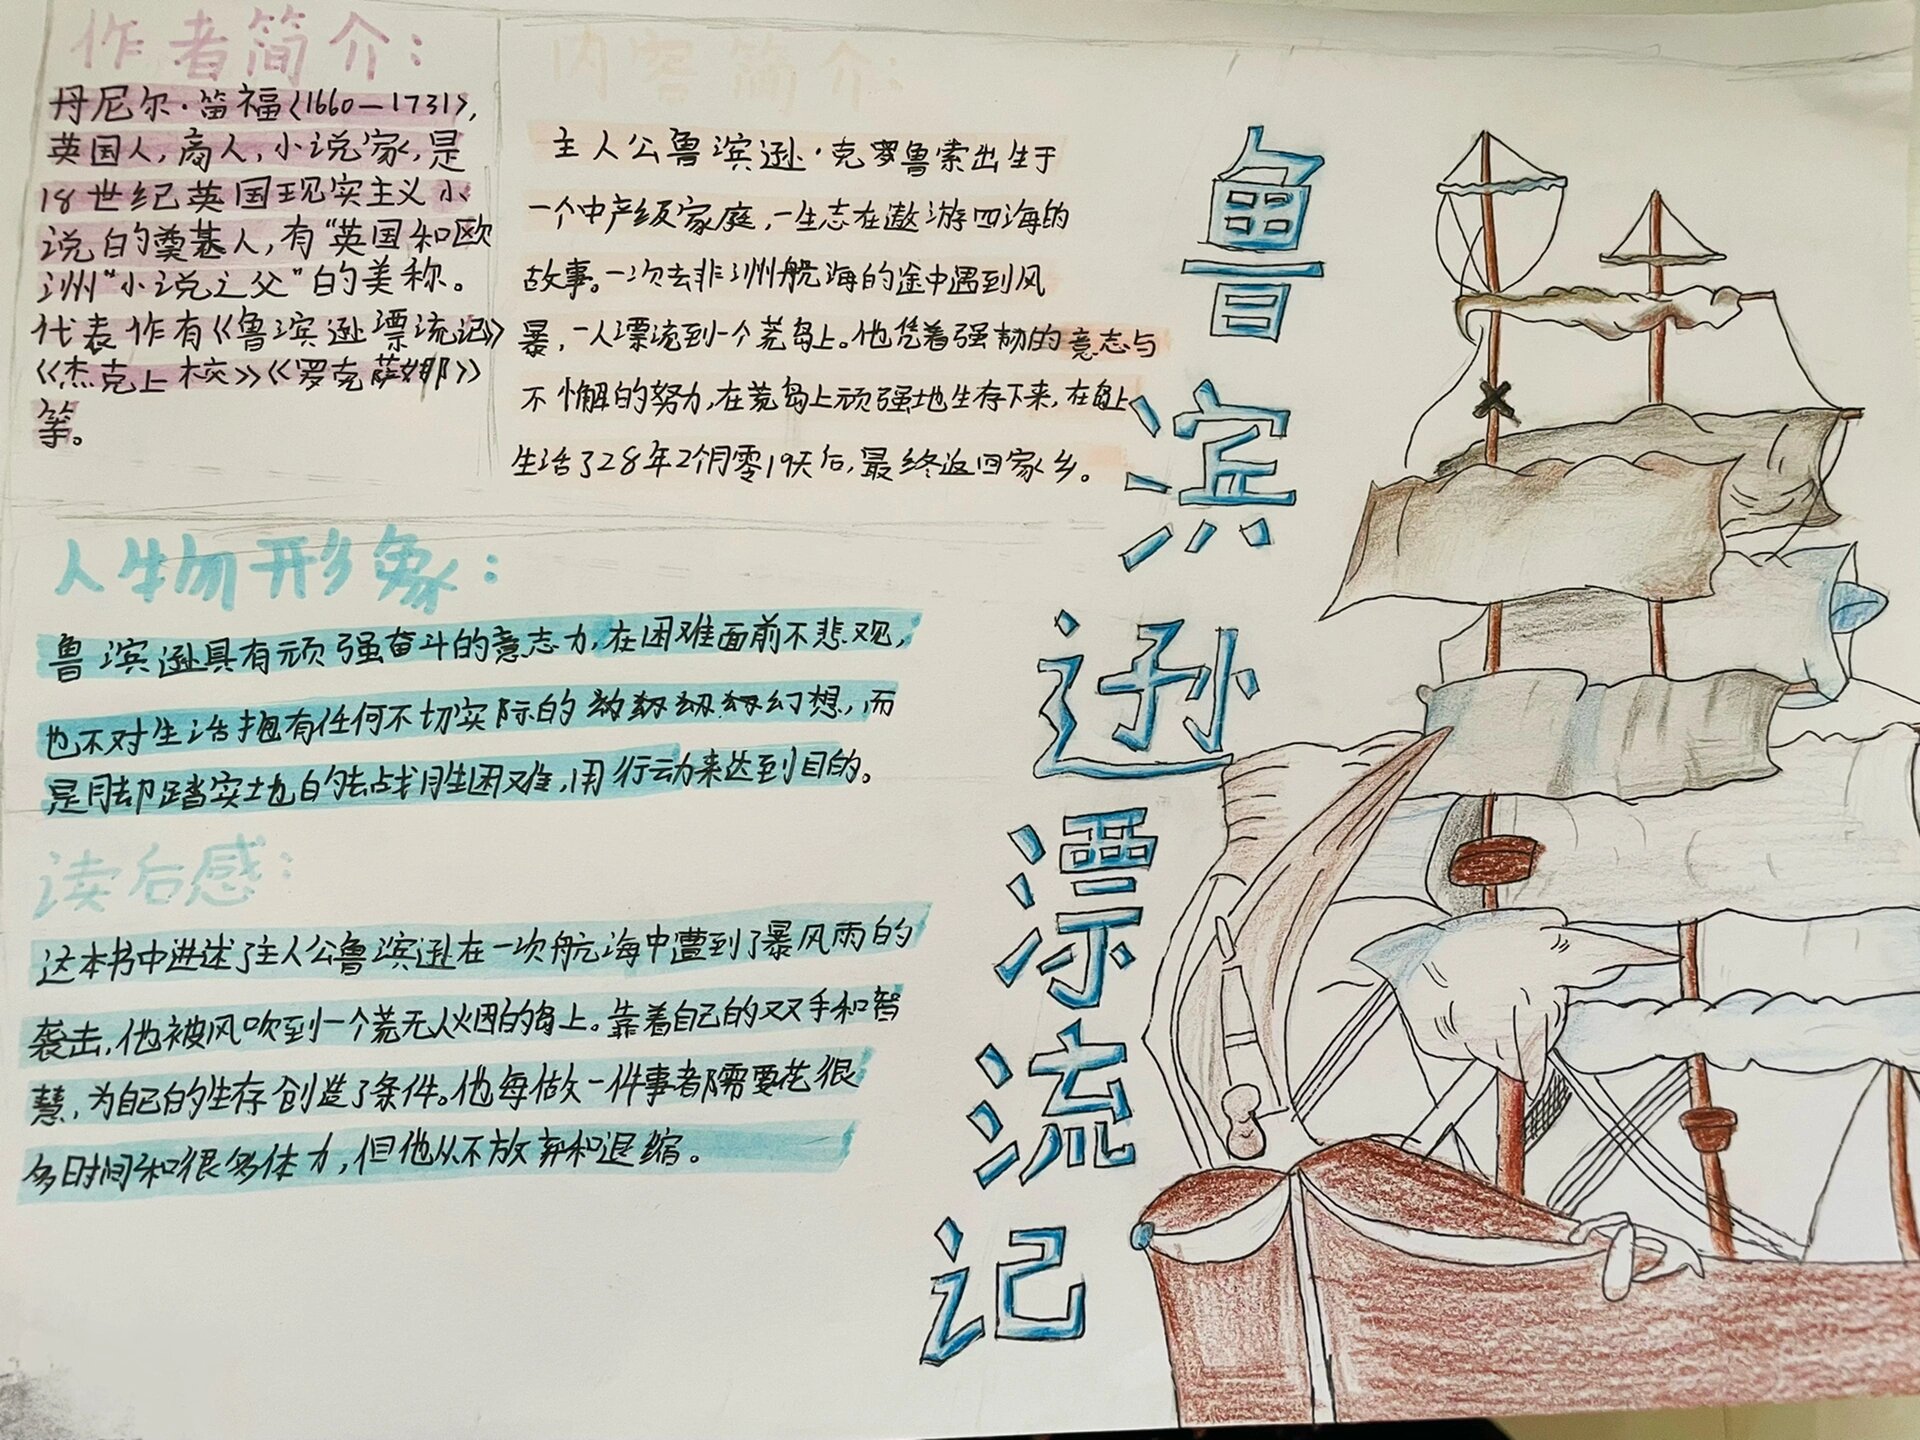 作者简介：
丹尼尔·笛福（1660—1731），
英国人，商人，小说家，是
18世纪英国现实主义小
说的奠基人，有“英国和欧
洲“小说之父”的美称。
代表作有《鲁滨逊漂流记》
《杰克上校》《罗克萨娜》
等。
内容简介：
主人公鲁滨逊·克罗鲁索出生于
一个中产级家庭，一生志在遨游四海的
故事。一次去非洲航海的途中遇到风
暴，一人漂流到一个荒岛上。他凭着强韧的意志与
不懈的努力，在荒岛上顽强地生存下来，在岛上
生活了28年2个月零19天后，最终返回家乡。
人物形象：
鲁滨逊具有顽强奋斗的意志力，在困难面前不悲观，
也不对生活抱有任何不切实际的幻想，而
是脚踏实地的去战胜困难，用行动来达到目的。
读后感：
这本书中讲述了主人公鲁滨逊在一次航海中遭到了暴风雨的
袭击，他被风吹到一个荒无人烟的岛上。靠着自己的双手和智
慧，为自己的生存创造了条件。他每做一件事者都需要花很
多时间和很多体力，但他从不放弃和退缩。
鲁滨逊漂流记